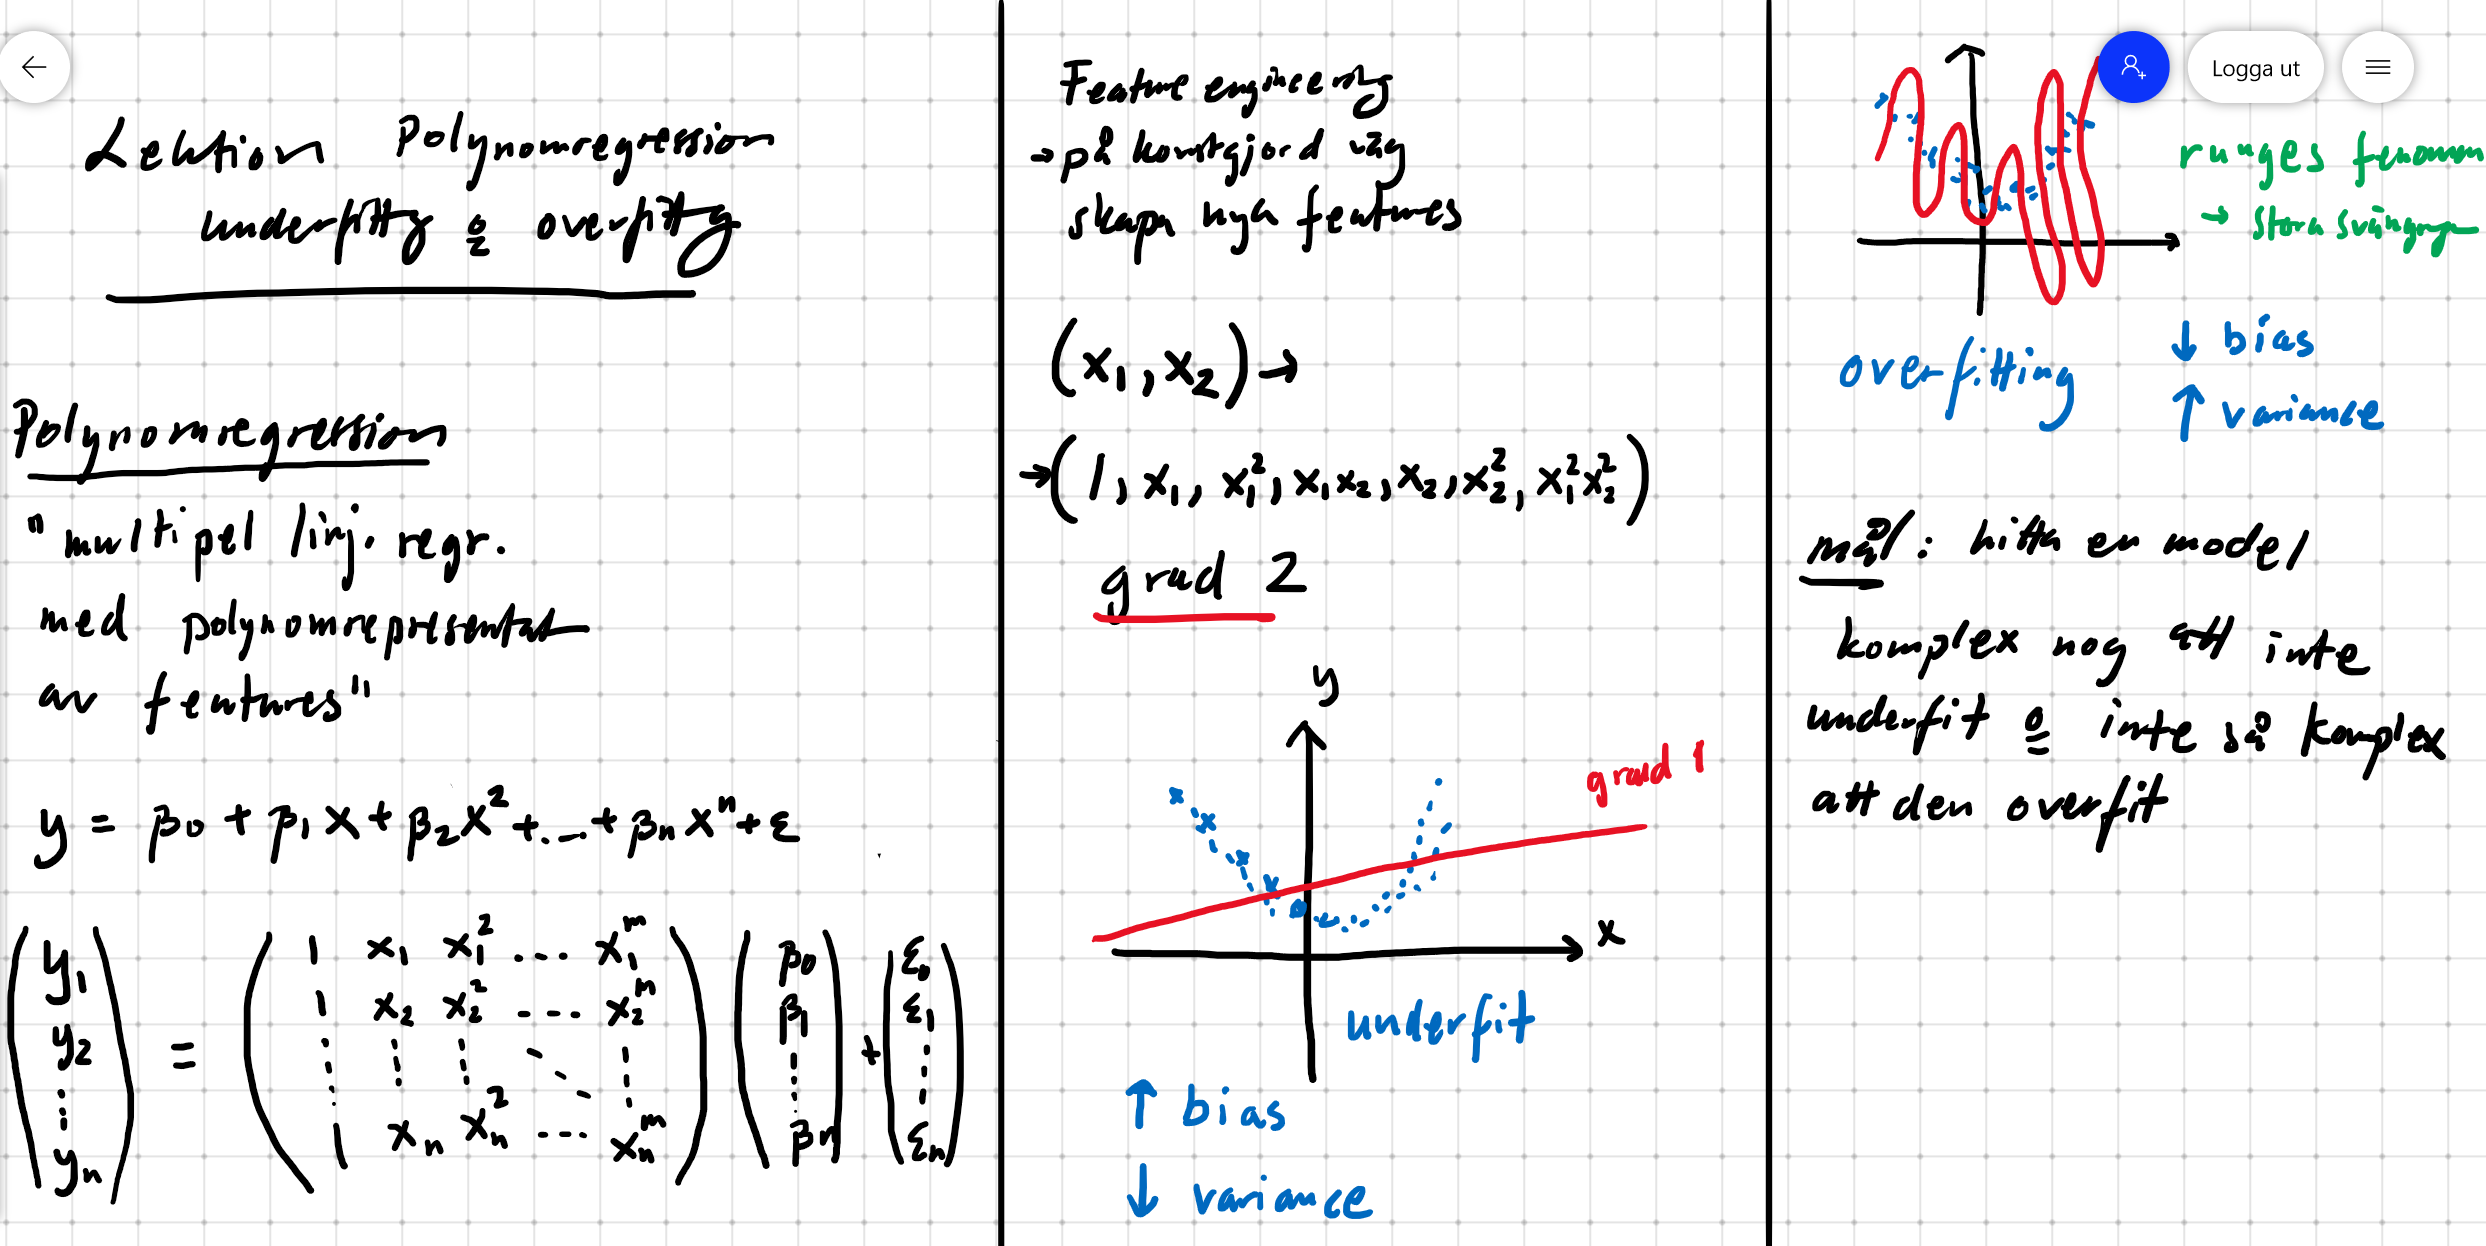 Lektion Polynomregression
underfitting & overfitting
Polynomregression
"multipel linj. regr.
med polynomrepresentat
av features"
y = β₀ + β₁x + β₂x² + ... + βₙxⁿ + ε
(y₁ y₂ ⋮ yₙ) = (1 x₁ x₁² ... x₁ᵐ
1 x₂ x₂² ... x₂ᵐ
⋮ ⋮ ⋮ ⋱ ⋮
1 xₙ xₙ² ... xₙᵐ) (β₀ β₁ ⋮ βₙ) + (ε₀ ε₁ ⋮ εₙ)
Feature engineering
→ på konstgjord väg
skapa nya features
(x₁, x₂) →
→ (1, x₁, x₁², x₁x₂, x₂, x₂², x₁²x₂²)
grad 2
y
grad 1
x
underfit
↑ bias
↓ variance
Logga ut
runges fenomen
→ stora svängngr
overfitting
↓ bias
↑ variance
mål: hitta en model
komplex nog att inte
underfit & inte så komplex
att den overfit